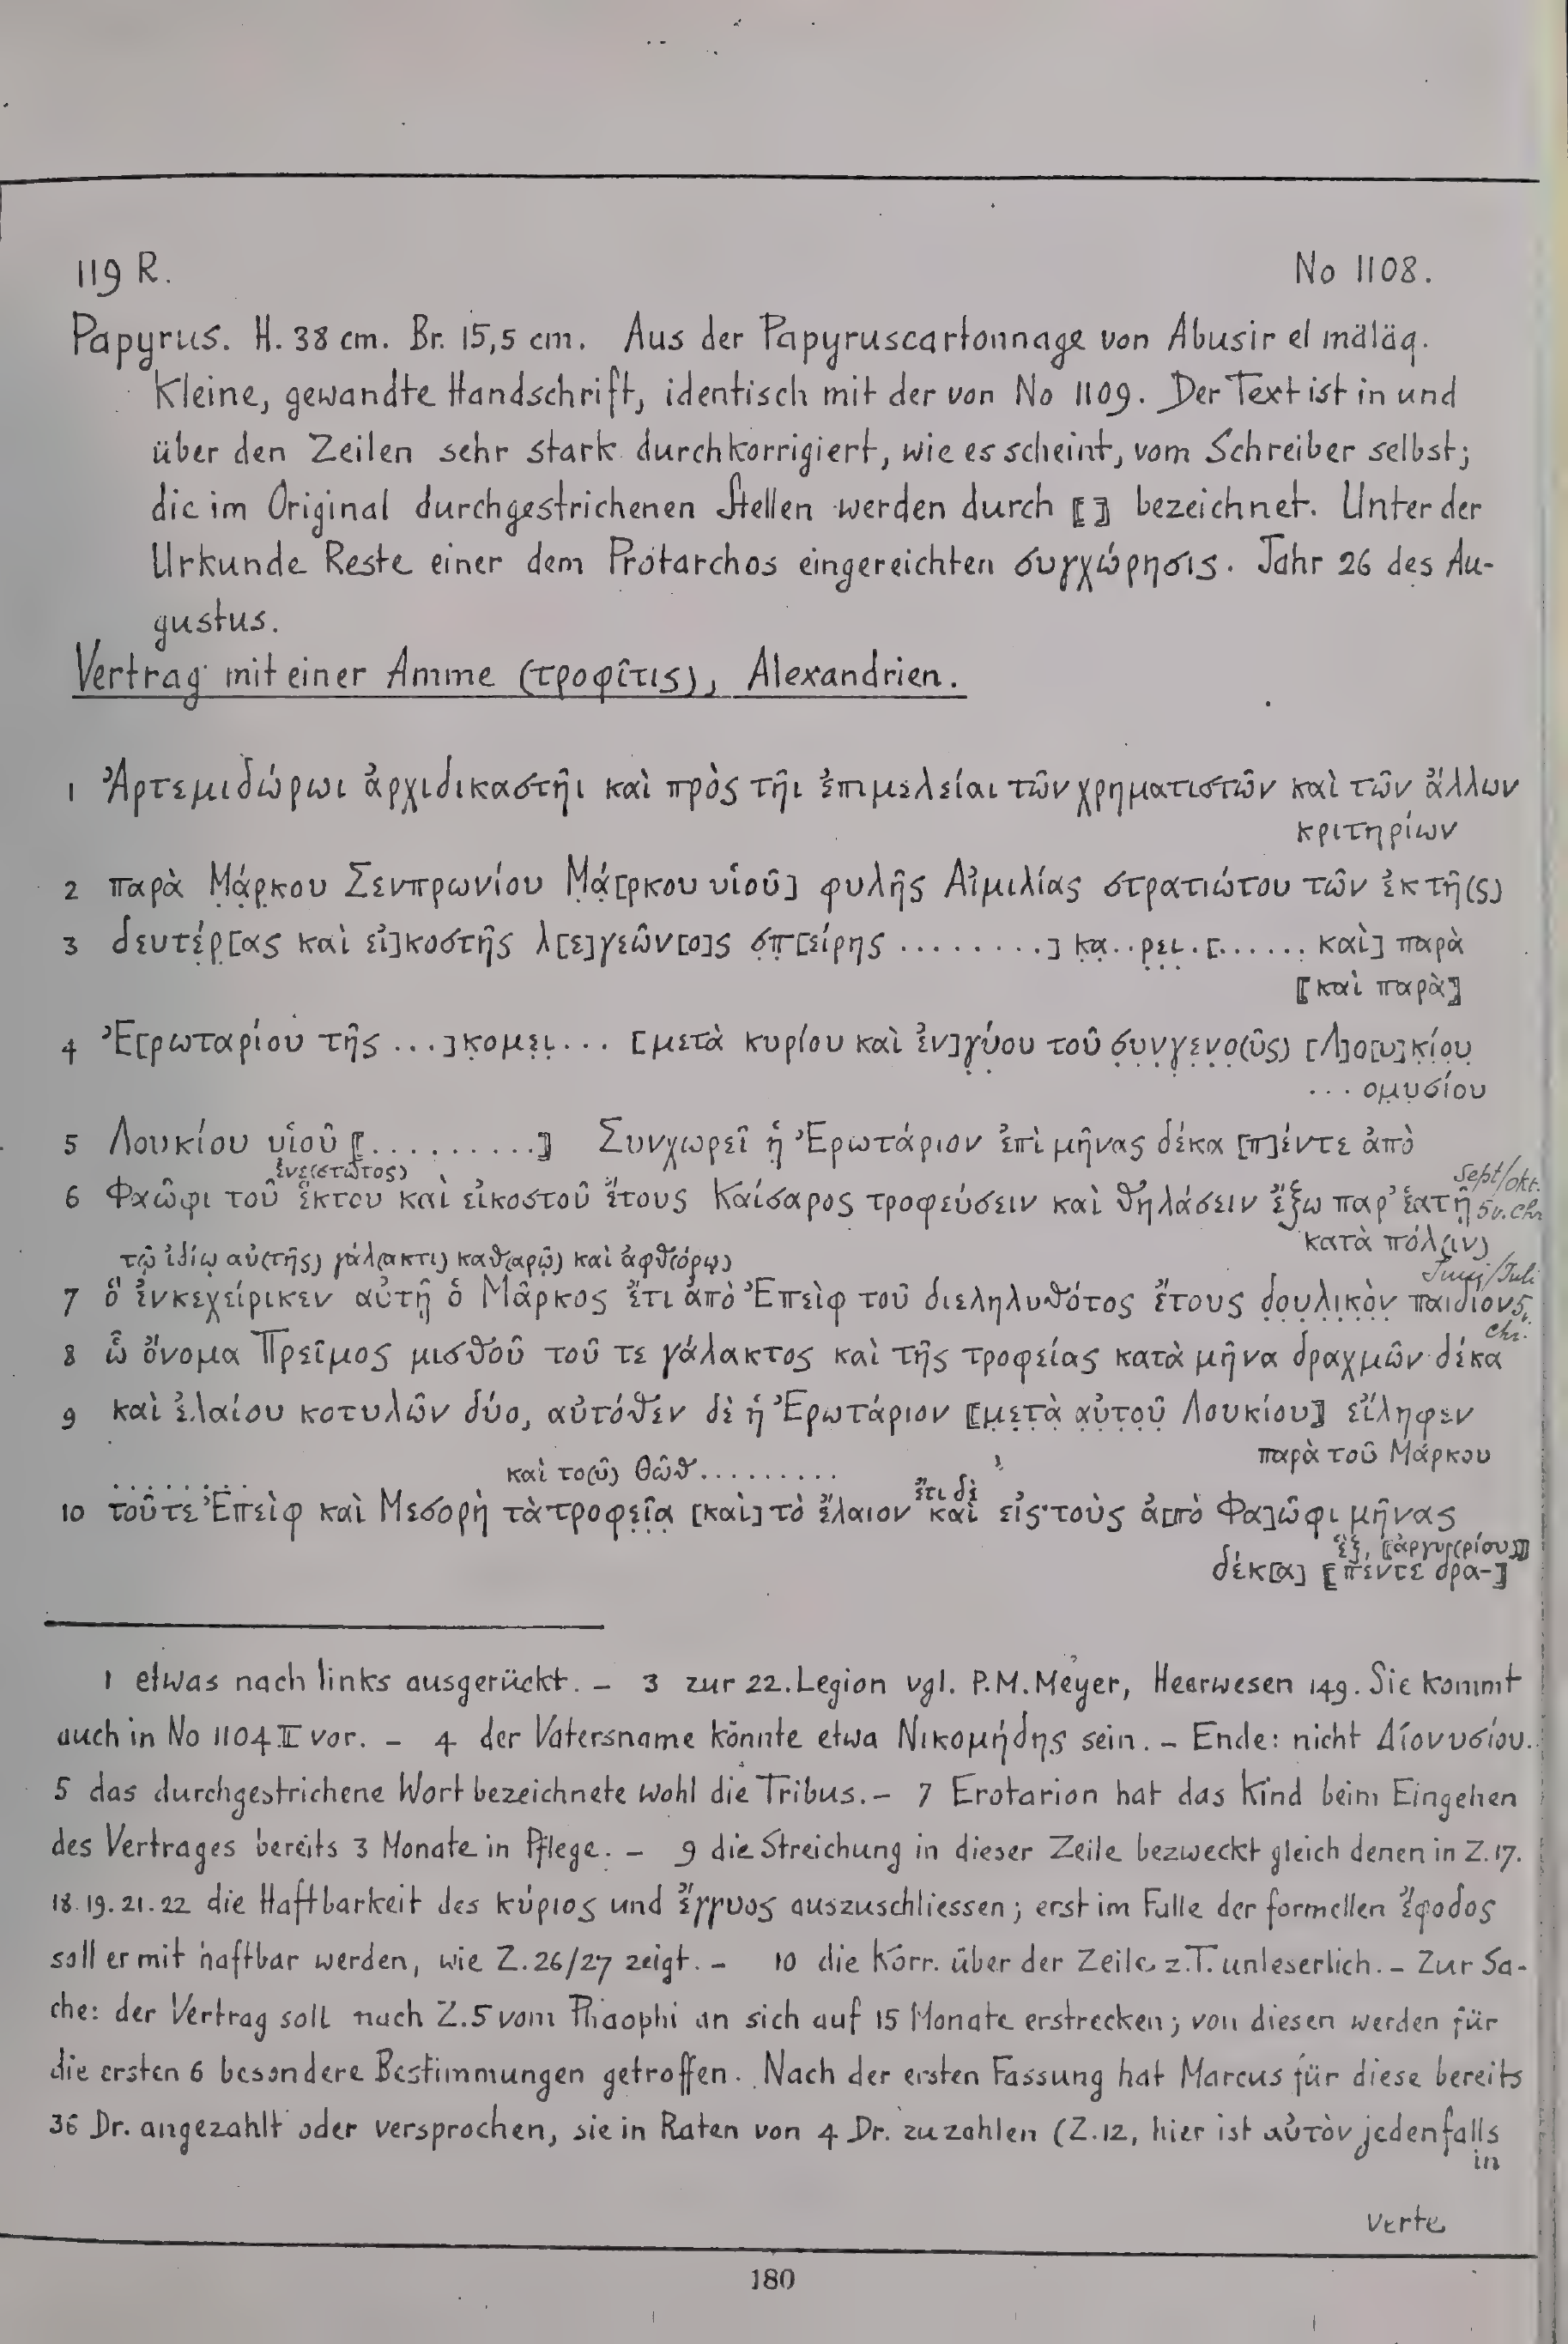 119 R. No 1108.
Papyrus. H. 38 cm. Br. 15,5 cm. Aus der Papyruscartonnage von Abusir el mäläq.
Kleine, gewandte Handschrift, identisch mit der von No 1109. Der Text ist in und
über den Zeilen sehr stark durchkorrigiert, wie es scheint, vom Schreiber selbst;
die im Original durchgestrichenen Stellen werden durch ⟦ ⟧ bezeichnet. Unter der
Urkunde Reste einer dem Protarchos eingereichten συγχώρησις. Jahr 26 des Au-
gustus.
Vertrag mit einer Amme (τροφῖτις), Alexandrien.
1 Ἀρτεμιδώρωι ἀρχιδικαστῆι καὶ πρὸς τῆι ἐπιμελείαι τῶν χρηματιστῶν καὶ τῶν ἄλλων
κριτηρίων
2 παρὰ Μ̣ά̣ρ̣κου Σενπρωνίου Μ̣ά̣[ρκου υἱοῦ] φυλῆς Αἰμιλίας στρατιώτου τῶν ἐκ τῆ(ς)
3 δευτέρ̣[ας καὶ εἰ]κοστῆς λ[ε]γεῶν[ο]ς σ̣π̣[είρης .........] κ̣α̣..ρ̣ε̣ι̣.[...... καὶ] παρὰ
⟦καὶ παρὰ⟧
4 Ἐ[ρωταρίου τῆς ...]κ̣ομε̣ι̣... [μετὰ κυρίου καὶ ἐν]γ̣ύ̣ου τοῦ σ̣υ̣ν̣γ̣ε̣ν̣ο̣(ῦς) [Λ]ο[υ]κ̣ί̣ο̣υ̣
...ομ̣υ̣σίου
5 Λουκίου υἱοῦ ⟦..........⟧ Συνχωρεῖ ἡ̣ Ἐρωτάριον ἐπὶ μῆνας δέκα [π]έντε ἀπὸ
ἐνε(στῶτος)
6 Φαῶφι τοῦ ἕκτου καὶ εἰκοστοῦ ἔτους Καίσαρος τροφεύσειν καὶ θηλάσειν ἔξω παρ’ ἑατῆ Sept/Okt. 5 v. Chr
κατὰ πόλ(ιν)
τῷ ἰδίῳ αὐ(τῆς) γάλ(ακτι) καθ(αρῷ) καὶ ἀφθ(όρῳ)
7 ὃ ἐνκεχείρικεν αὐτῇ ὁ Μᾶρκος ἔτι ἀπὸ Ἐπεὶφ τοῦ διεληλυθότος ἔτους δ̣ο̣υ̣λ̣ι̣κ̣ὸ̣ν̣ παιδίον Juni/Juli 5 v. Chr.
8 ᾧ ὄνομα Πρεῖμος μισθοῦ τοῦ τε γάλακτος καὶ τῆς τροφείας κατὰ μῆνα δραχμῶν δέκα
9 καὶ ἐλαίου κοτυλῶν δύο, αὐτόθεν δὲ ἡ Ἐρωτάριον ⟦μ̣ε̣τ̣ὰ̣ α̣ὐ̣τ̣ο̣ῦ̣ Λουκίου⟧ εἴληφεν
παρὰ τοῦ Μάρκου
........ καὶ το(ῦ) Θῶθ......... ἔτι δὲ
10 τοῦτε Ἐπεὶφ καὶ Μεσορὴ τὰ τροφε̣ῖ̣α̣ [καὶ] τὸ ἔλαιον καὶ εἰς τοὺς ἀ[πὸ Φα]ῶφι μῆνας
ἕξ, ⟦ἀργυ(ρίου)⟧
δέκ[α] ⟦πέντε δρα-⟧
1 etwas nach links ausgerückt. – 3 zur 22. Legion vgl. P. M. Meyer, Heerwesen 149. Sie kommt
auch in No 1104 II vor. – 4 der Vatersname könnte etwa Νικομήδης sein. – Ende: nicht Διονυσίου.
5 das durchgestrichene Wort bezeichnete wohl die Tribus. – 7 Erotarion hat das Kind beim Eingehen
des Vertrages bereits 3 Monate in Pflege. – 9 die Streichung in dieser Zeile bezweckt gleich denen in Z. 17.
18. 19. 21. 22 die Haftbarkeit des κύριος und ἔγγυος auszuschliessen; erst im Falle der formellen ἔφοδος
soll er mit haftbar werden, wie Z. 26/27 zeigt. – 10 die Korr. über der Zeile z. T. unleserlich. – Zur Sa-
che: der Vertrag soll nach Z. 5 vom Phaophi an sich auf 15 Monate erstrecken; von diesen werden für
die ersten 6 besondere Bestimmungen getroffen. Nach der ersten Fassung hat Marcus für diese bereits
36 Dr. angezahlt oder versprochen, sie in Raten von 4 Dr. zu zahlen (Z. 12, hier ist αὐτὸν jedenfalls
in
verte
180